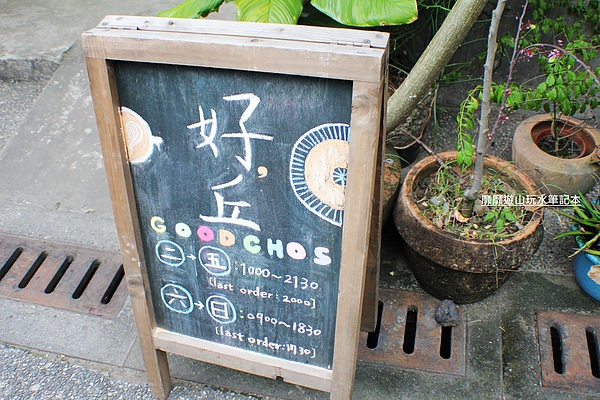 好,
丘
GOODCHOS
二→五:1000~2130
(last order: 2000)
六→日:0900~1830
(last order:1730)
靡靡遊山玩水筆記本